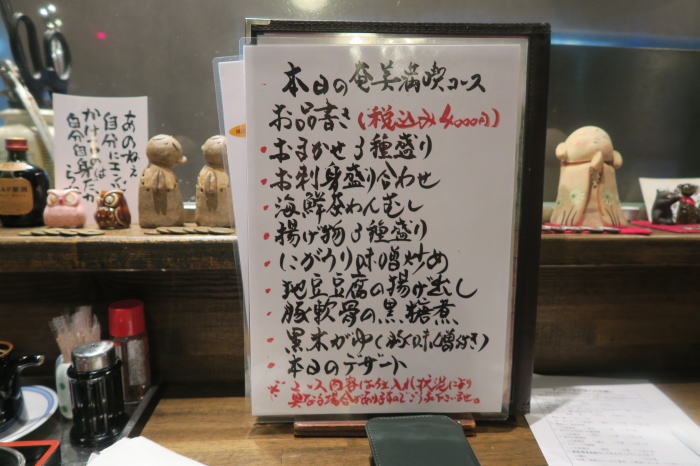 本日の奄美満喫コース
お品書き(税込み4000円)
・おまかせ3種盛り
・お刺身盛り合わせ
・海鮮茶わんむし
・揚げ物3種盛り
・にがうり味噌炒め
・地豆豆腐の揚げ出し
・豚軟骨の黒糖煮
・黒米がゆ(豚味噌付き)
・本日のデザート
※コース内容は仕入れ状況により
異なる場合がありますのでご了承くださいませ。
あのねぇ
自分にエ
かけ
自分自身だから